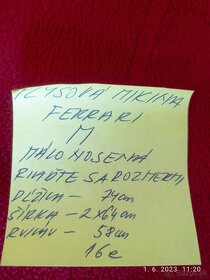 FLÝSOVÁ MIKINA
FERRARI
M
MÁLO NOSENÁ
RIAĎTE SA ROZMERMI
DĹŽKA - 74cm
ŠÍRKA - 2x64cm
RUKÁV - 58cm
16e
1. 6. 2023 11:20